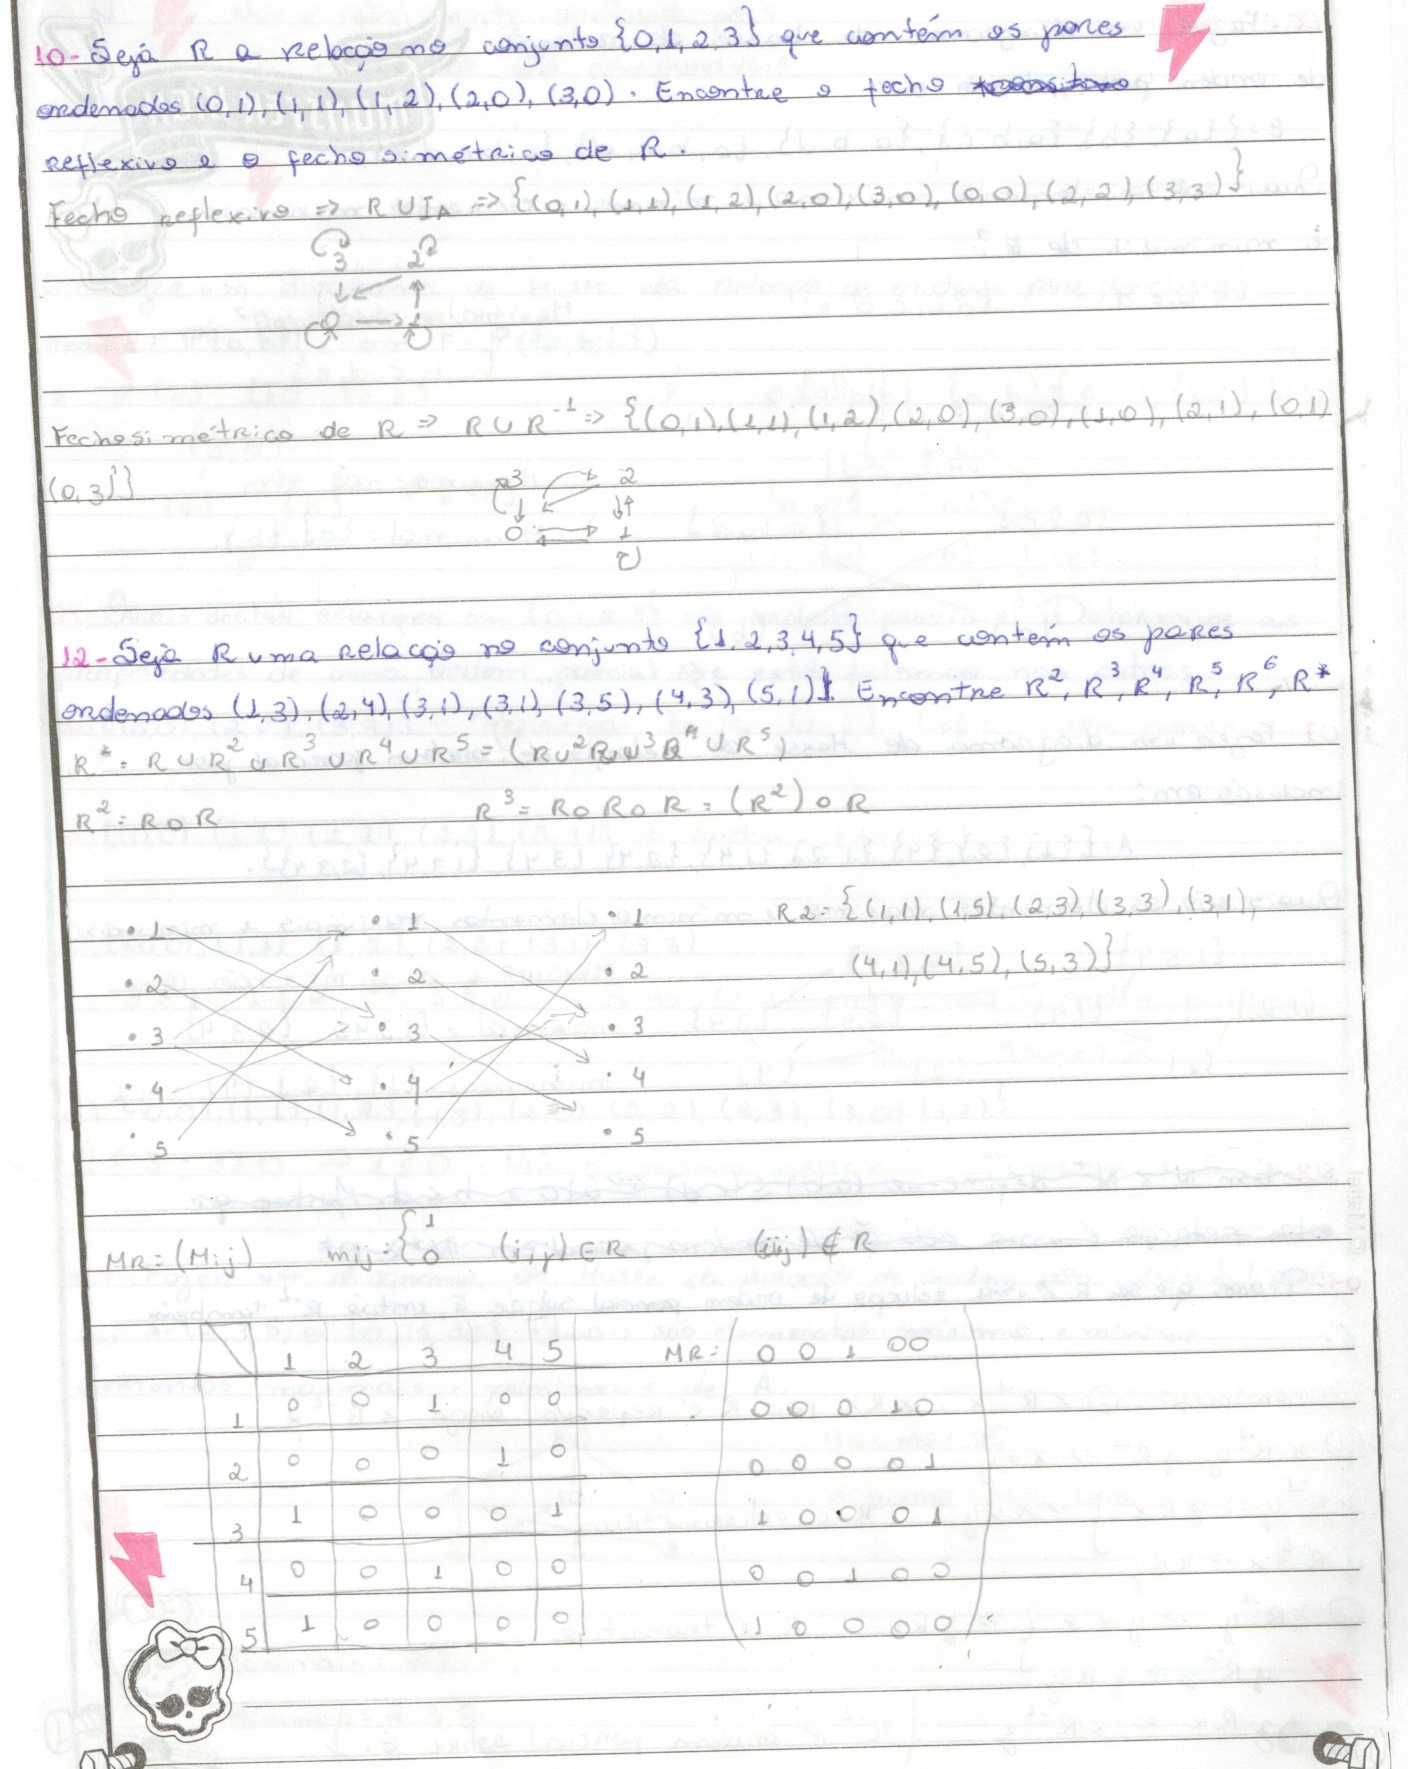 10- Seja R a relação no conjunto {0,1,2,3} que contém os pares
ordenados (0,1), (1,1), (1,2), (2,0), (3,0). Encontre o fecho transitivo
reflexivo e o fecho simétrico de R.
Fecho reflexivo => R U IA => {(0,1), (1,1), (1,2), (2,0), (3,0), (0,0), (2,2), (3,3)}
3 2
0 1
Fecho simétrico de R => R U R⁻¹ => {(0,1), (1,1), (1,2), (2,0), (3,0), (1,0), (2,1), (0,1)
(0,3)}
3 2
0 1
12- Seja R uma relação no conjunto {1,2,3,4,5} que contem os pares
ordenados (1,3), (2,4), (3,1), (3,1), (3,5), (4,3), (5,1). Encontre R², R³, R⁴, R⁵, R⁶, R*
R* = R U R² U R³ U R⁴ U R⁵ =
R² = R o R R³ = R o R o R = (R²) o R
• 1 • 1 • 1 R2 = {(1,1), (1,5), (2,3), (3,3), (3,1),
• 2 • 2 • 2 (4,1), (4,5), (5,3)}
• 3 • 3 • 3
• 4 • 4 • 4
• 5 • 5 • 5
MR = (Mij) mij = { 1 0 (i,j) ∈ R (i,j) ∉ R
1 2 3 4 5 MR = 0 0 1 0 0
1 0 0 1 0 0 0 0 0 1 0
2 0 0 0 1 0 0 0 0 0 1
3 1 0 0 0 1 1 0 0 0 1
4 0 0 1 0 0 0 0 1 0 0
5 1 0 0 0 0 1 0 0 0 0